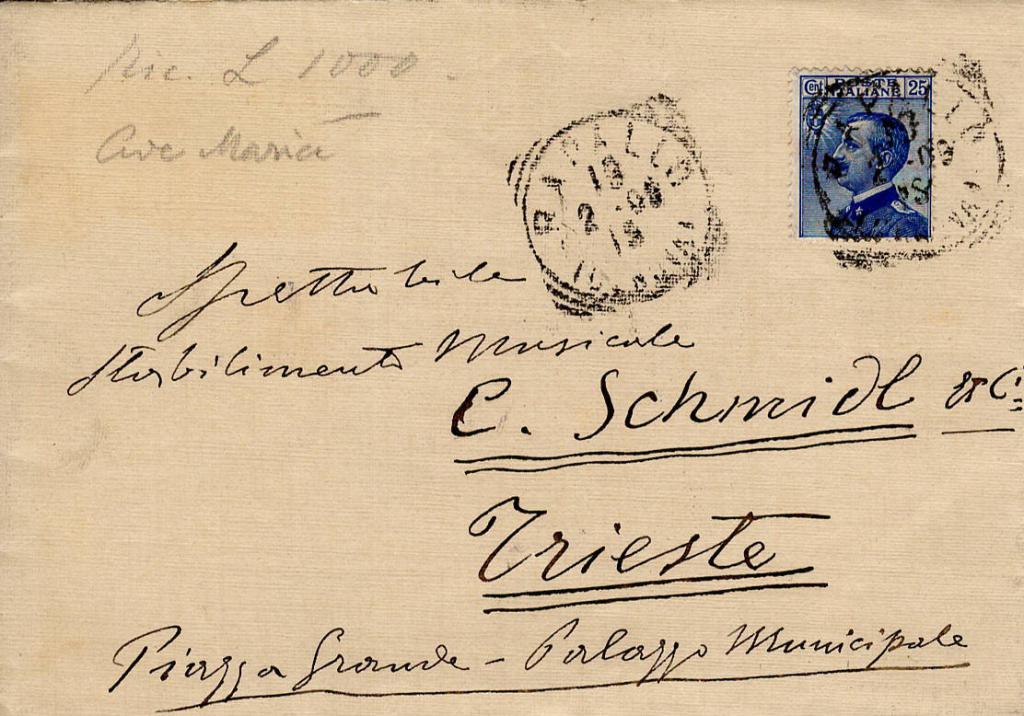 Ric. L 1000.
Ave Maria
Cent POSTE ITALIANE 25
RAPALLO
Spettabile
Stabilimento Musicale
C. Schmidl & Ci.
Trieste
Piazza Grande - Palazzo Municipale